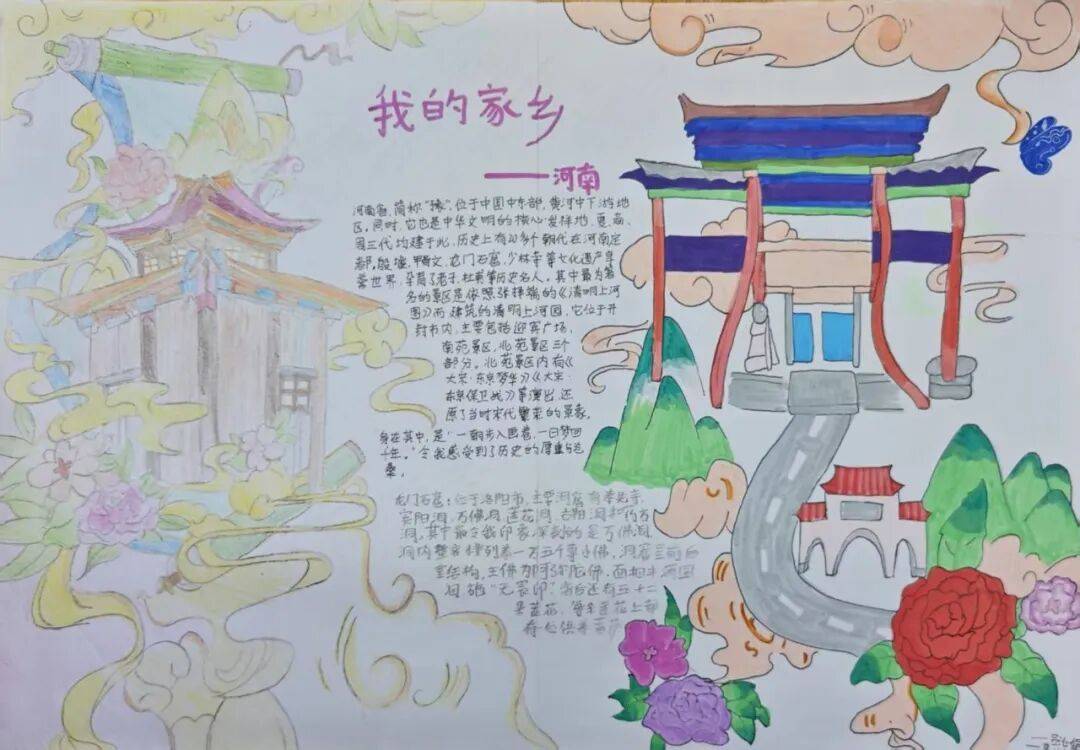 我的家乡
——河南
河南省,简称"豫",位于中国中东部,黄河中下游地
区,同时,它也是中华文明的核心发祥地,夏、商、
周三代均建于此,历史上有20多个朝代在河南定
都,殷墟,甲骨文,龙门石窟,少林寺等文化遗产享
誉世界,孕育了老子、杜甫等历史名人。其中最为著
名的景区是依照张择端的《清明上河
图》而建筑的清明上河园,它位于开
封市内,主要包括迎宾广场,
南苑景区,北苑景区三个
部分。北苑景区内有《
大宋·东京梦华》《大宋·
东京保卫战》等演出,还
原了当时宋代繁荣的景象。
身在其中,是"一朝步入画卷,一日梦回
千年。"令我感受到了历史的厚重与沧
桑。
龙门石窟:位于洛阳市,主要洞窟有奉先寺,
宾阳洞,万佛洞,莲花洞,古阳洞和药方
洞,其中最令我印象深刻的是万佛洞,
洞内整齐排列着一万五千尊小佛,洞窟呈前后
室结构,主佛为阿弥陀佛,面相丰满圆
润,施"无畏印",背后还有五十二
朵莲花,每朵莲花上都